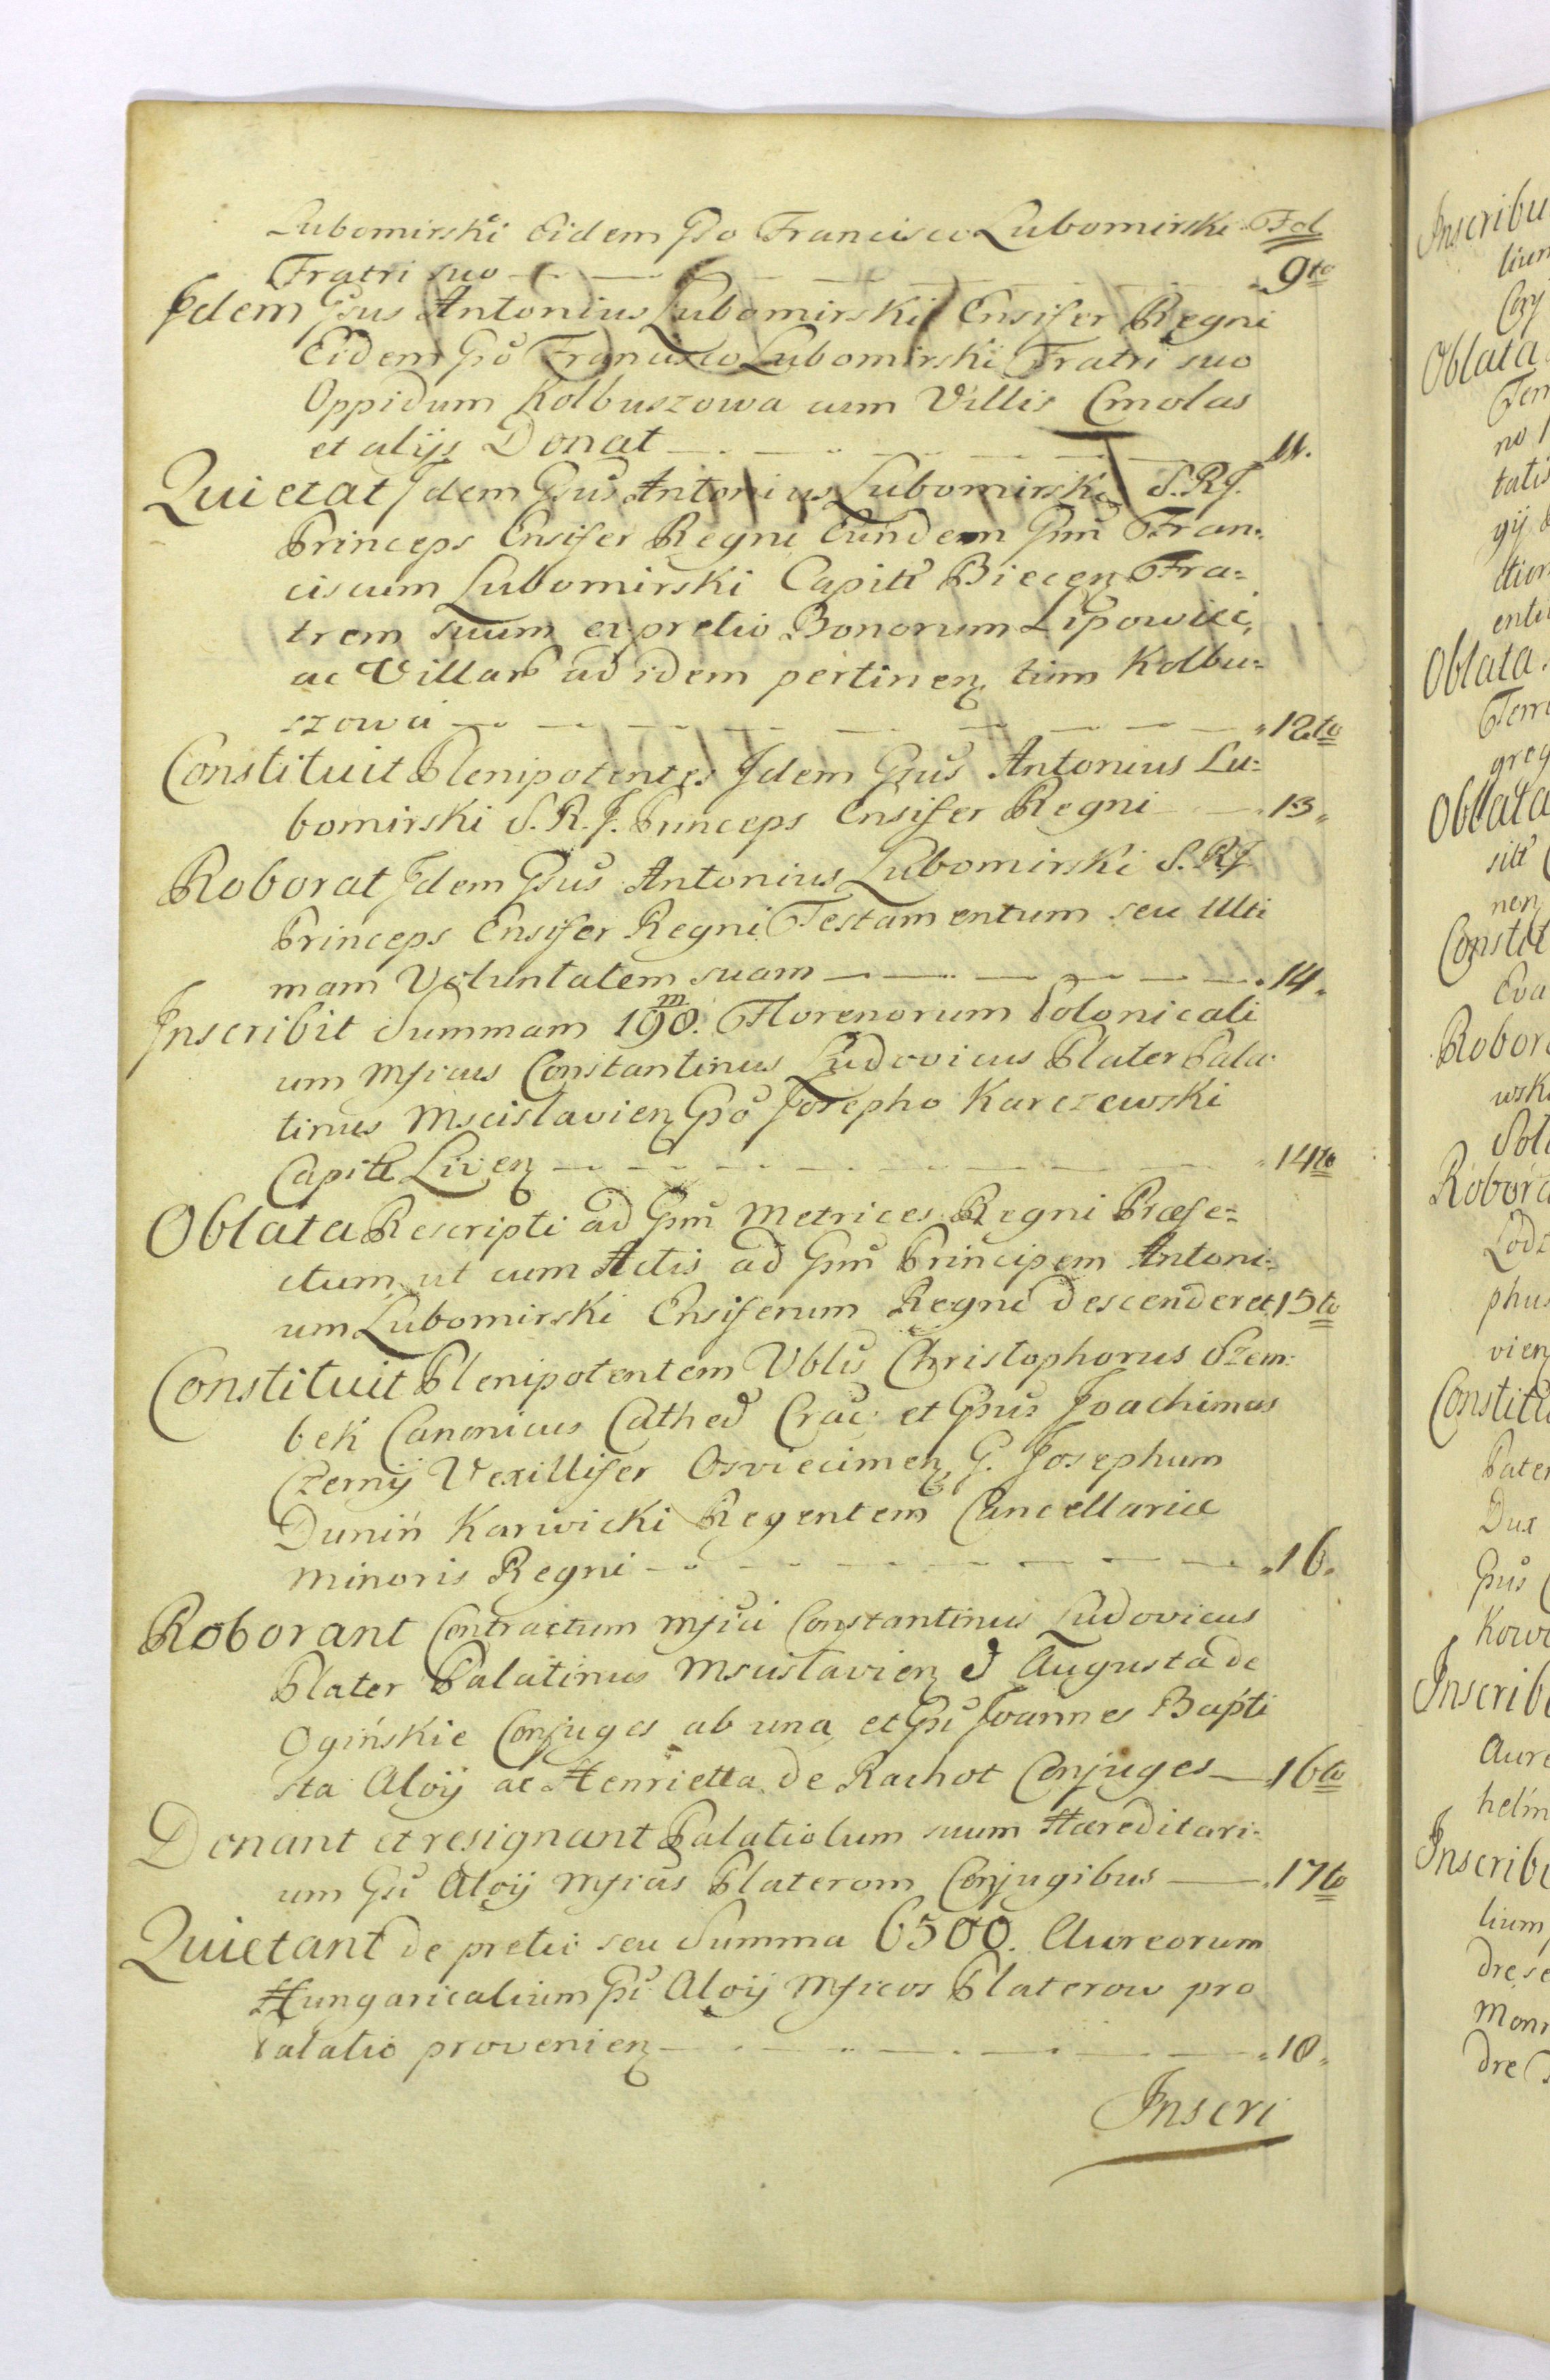 Lubomirski Eidem Gso Francisco Lubomirski Fol
Fratri suo 9to
Idem Gsus Antonius Lubomirski Ensifer Regni
Eidem Gso Francisco Lubomirski Fratri suo
Oppidum Kolbuszowa cum Villis Cmolas
et alijs Donat 11.
Quietat Idem Gsus Antonius Lubomirski S.R.J.
Princeps Ensifer Regni Eundem Gsm Fran=
ciscum Lubomirski Capite Biecen Fra=
trem suum ex pretio Bonorum Lipowiec,
ac Villar ad idem pertinen tum Kolbu=
szowa 12to
Constituit Plenipotentes Idem Gsus Antonius Lu=
bomirski S.R.J. Princeps Ensifer Regni 13.
Roborat Idem Gsus Antonius Lubomirski S.R.J.
Princeps Ensifer Regni Testamentum seu Ulti
mam Voluntatem suam 14.
Inscribit Summam 190. m Florenorum Polonicali
um Mficus Constantinus Ludovicus Plater Pala
tinus Mscislavien Gso Josepho Karczewski
Capite Liven 14to
Oblata Rescripti ad Gsm Metrices Regni Præfe=
ctum ut cum Actis ad Gsm Principem Antoni=
um Lubomirski Ensiferum Regni descenderet 15to
Constituit Plenipotentem Vblis Christophorus Szem=
bek Canonicus Cathed Crac: et Gsus Joachimus
Czerny Vexillifer Osviecimen G. Josephum
Dunin Karwicki Regentem Cancellariæ
Minoris Regni 16.
Roborant Contractum Mfici Constantinus Ludovicus
Plater Palatinus Mscislavien & Augusta de
Ogińskie Conjuges ab una, et Gsi Joannes Bapti
sta Aloÿ ac Henrietta de Rachot Conjuges 16to
Donant et resignant Palatiolum suum Hæreditari=
um Gsi Aloÿ Mficis Platerom Conjugibus 17to
Quietant de pretio seu Summa 6500. Aureorum
Hungaricalium Gsi Aloÿ Mficos Platerow pro
Palatio provenien 18.
Inscri
Inscribu
lium
Oblata
Ten
no 1
tatis
gij
ction
Oblata
Terr
greg
Oblata
nen
Constit
Eva
Robora
wsk
Robora
Lodz
phus
vien
Constitu
Pater
Dux
Gsus
Kow
Inscribi
Aure
helm
Inscribi
lium
drese
Mon
dre